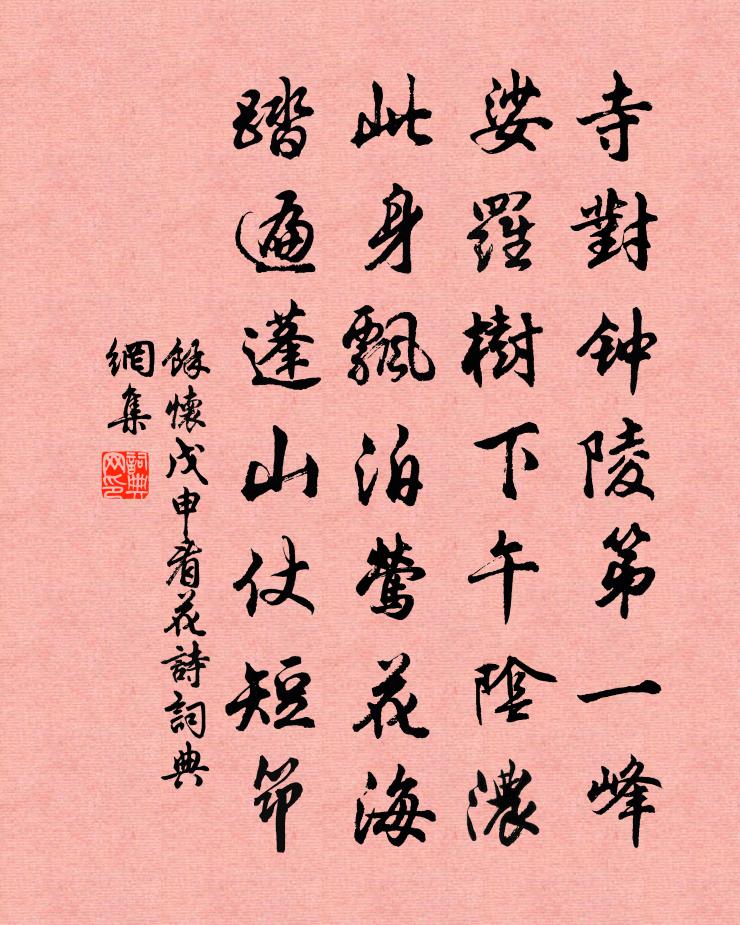 寺對钟陵第一峰
娑羅樹下午陰濃
此身飄泊鶯花海
踏遍蓬山仗短笻
餘懷戊申看花詩詞典
網集
詞典網印